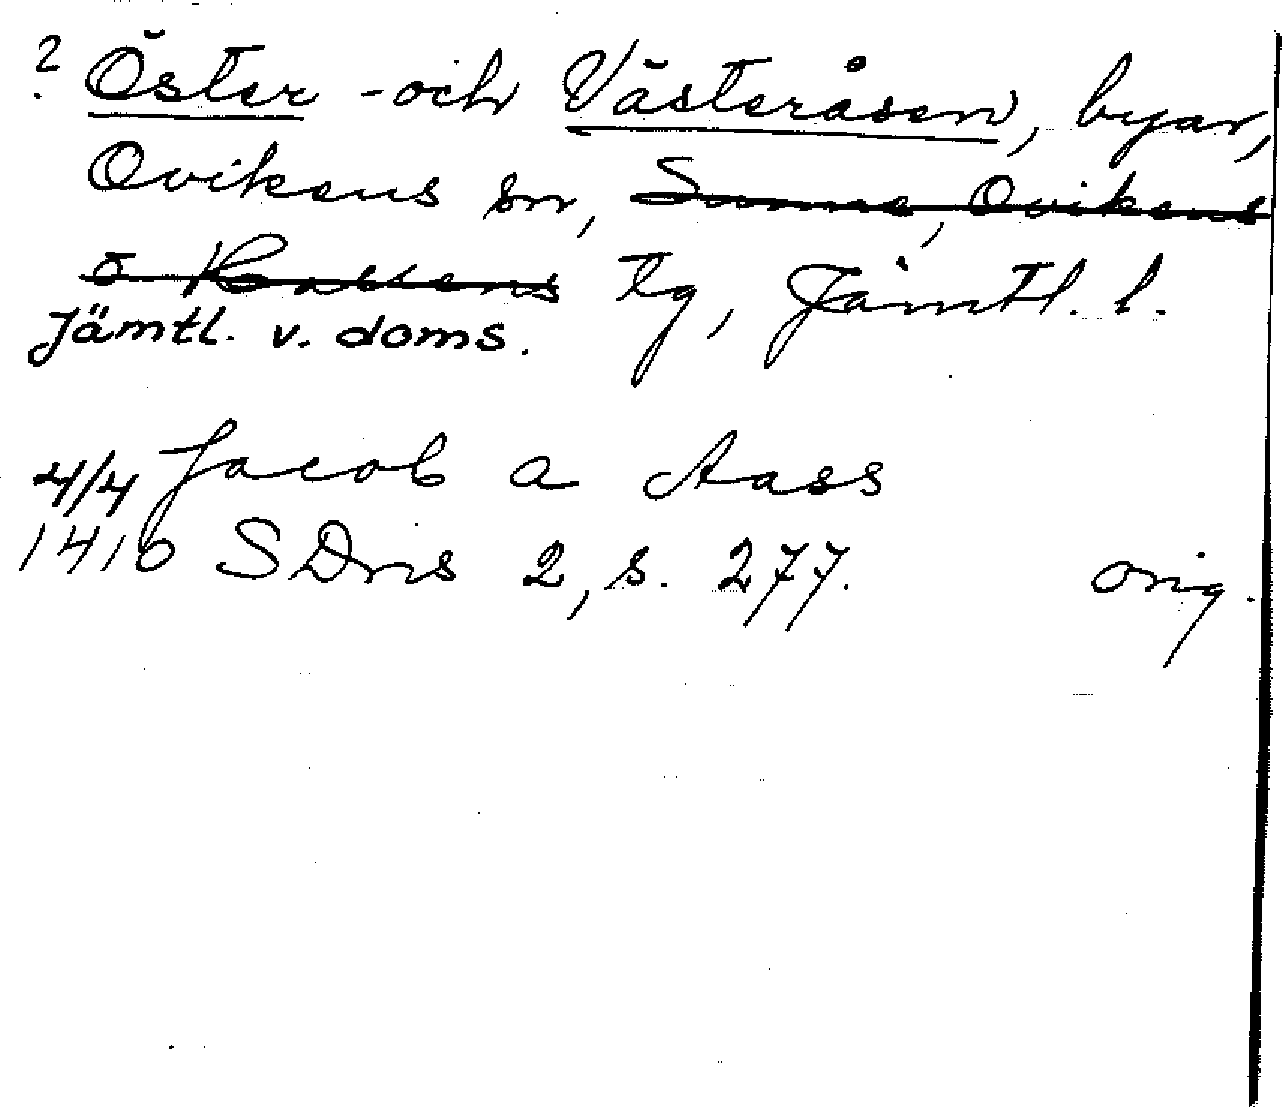 ? Öster - och Västeråsen, byar,
Ovikens sn, Sunne, Ovikens
o Hallens tg, Jämtl. l.
Jämtl. v. doms.
4/4 Jacob a Aass
1410 SDns 2, s. 277. orig.